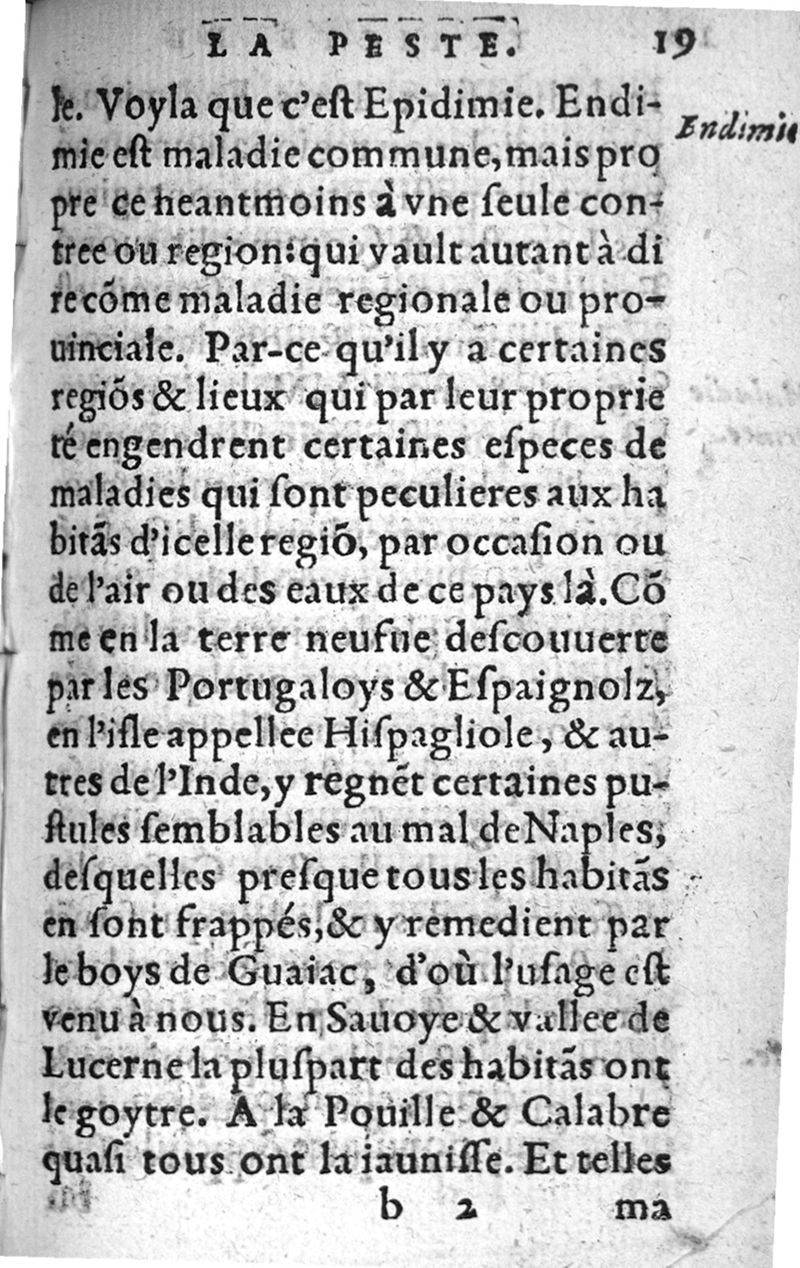 LA PESTE. 19
le. Voyla que c'eſt Epidimie. Endi-
Endimie
mie eſt maladie commune, mais pro
pre ce neantmoins à vne ſeule con-
tree ou region: qui vault autant à di
re cõme maladie regionale ou pro-
uinciale. Par-ce qu'il y a certaines
regiõs & lieux qui par leur proprie
té engendrent certaines eſpeces de
maladies qui ſont peculieres aux ha
bitãs d'icelle regiõ, par occaſion ou
de l'air ou des eaux de ce pays là. Cõ
me en la terre neufue deſcouuerte
par les Portugaloys & Eſpaignolz,
en l'iſle appellee Hiſpagliole, & au-
tres de l'Inde, y regnẽt certaines pu-
ſtules ſemblables au mal de Naples,
deſquelles preſque tous les habitãs
en ſont frappés, & y remedient par
le boys de Guaiac, d'où l'uſage eſt
venu à nous. En Sauoye & vallee de
Lucerne la pluſpart des habitãs ont
le goytre. A la Pouille & Calabre
quaſi tous ont la iauniſſe. Et telles
b 2 ma